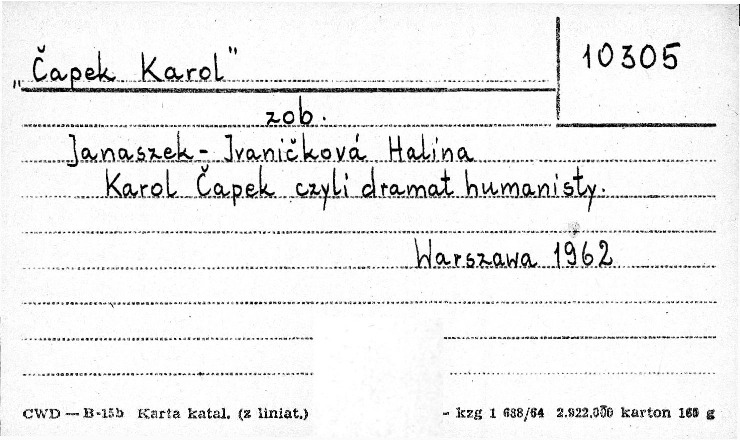 „Čapek Karol"
10305
zob.
Janaszek-Ivaničková Halina
Karol Čapek czyli dramat humanisty.
Warszawa 1962
CWD — B-15b Karta katal. (z liniat.)
- kzg 1 688/64 2.922.000 karton 160 g